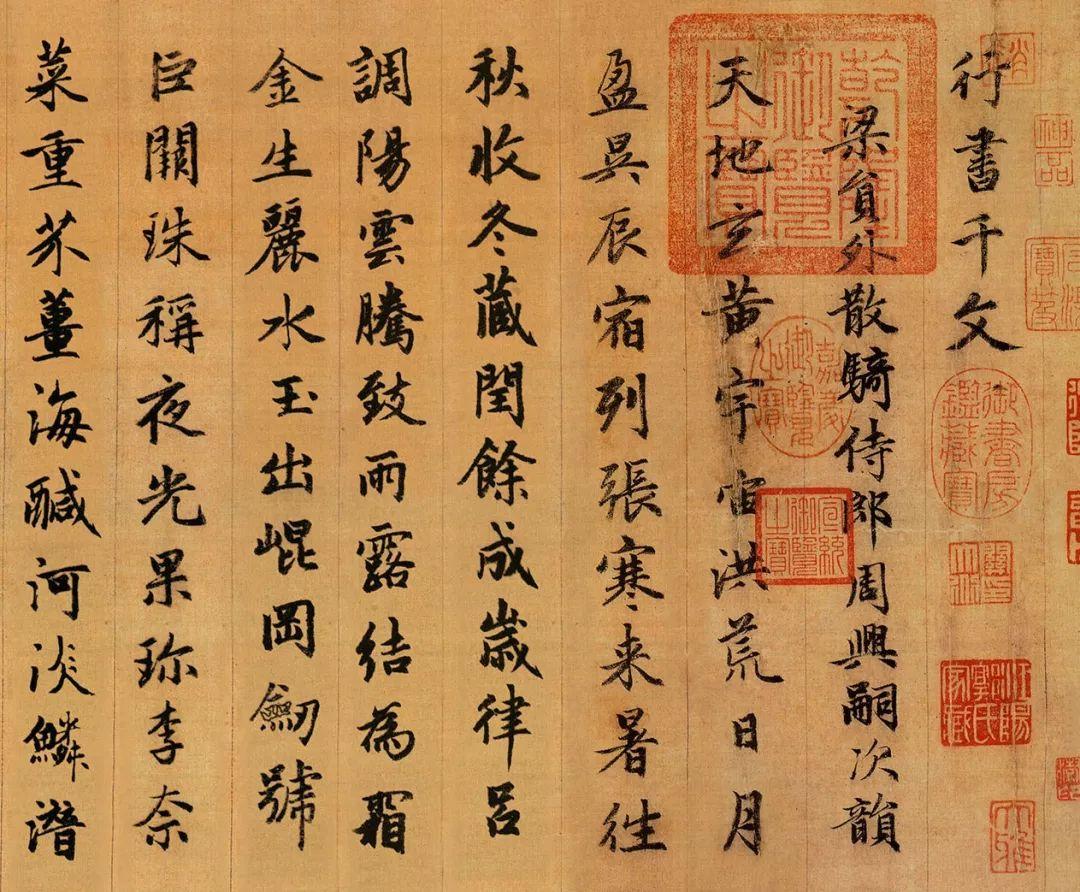 行書千文
梁貟外散騎侍郎周興嗣次韻
天地玄黄宇宙洪荒日月
盈昃辰宿列張寒来暑往
秋收冬藏閏餘成歲律吕
調陽雲騰致雨露結為霜
金生麗水玉出崐岡劒號
巨闕珠稱夜光果珎李柰
菜重芥薑海鹹河淡鱗潛
乾隆御覽之寶
嘉慶御覽之寶
宣統御覽之寶
神品
石渠寶笈
御書房鑑藏寶